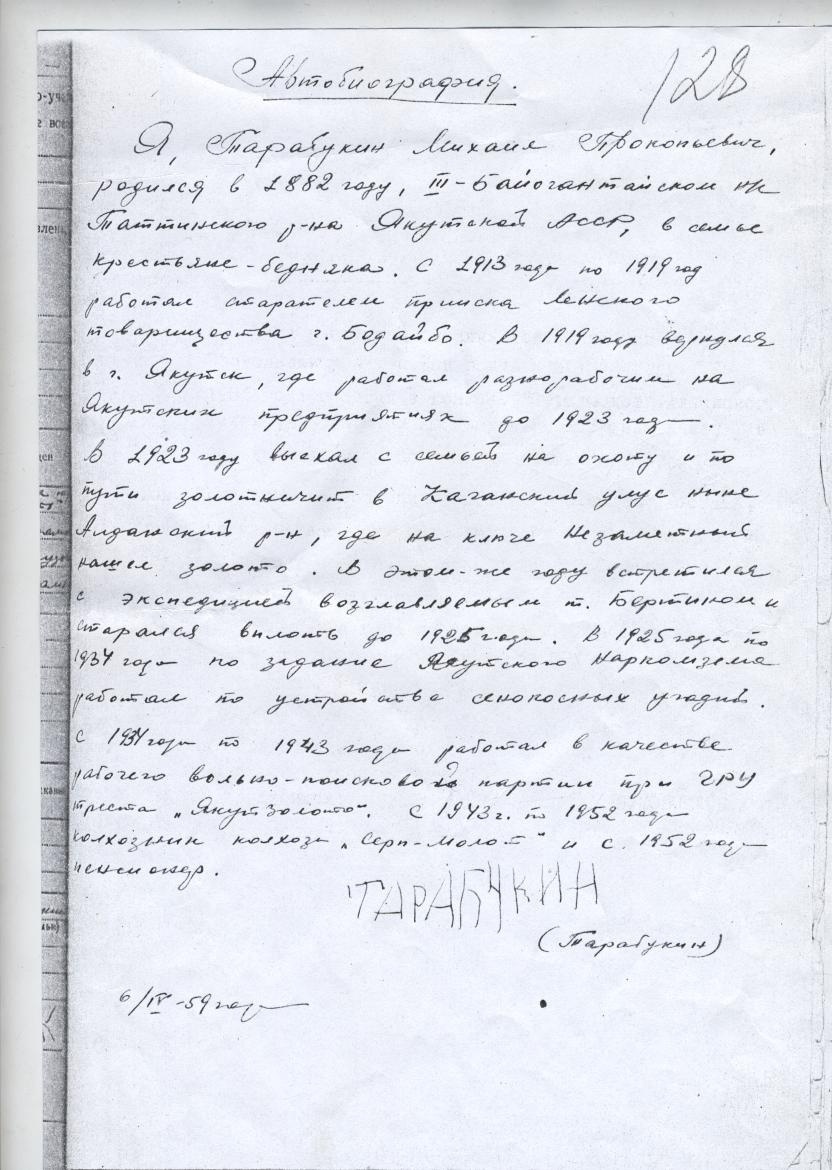 Автобиография.
128
Я, Тарабукин Михаил Прокопьевич,
родился в 1882 году, III-Байогантайском
Таттинского р-на Якутской АССР, в семье
крестьяне-бедняка. С 1913 года по 1919 год
работал старателем прииска Ленского
товарищества г. Бодайбо. В 1919 году вернулся
в г. Якутск, где работал разнорабочим на
Якутских предприятиях до 1923 года.
В 1923 году выехал с семьей на охоту и по
пути золотничит в улус ныне
Алданский р-н, где на ключе Незаметный
нашел золото. В этом-же году встретился
с экспедицией возглавляемым т. Бертином и
старался вплоть до 1925 года. В 1925 года по
1934 года по задание Якутского Наркомзема
работал по устройства сенокосных угодий.
С 1934 года по 1943 года работал в качестве
рабочего вольно-поисковой партии при ГРУ
треста „Якутзолото". С 1943 г. по 1952 года
колхозник колхоза „Серп-Молот" и с 1952 года
пенсионер.
ТАРАБУКИН
(Тарабукин)
6/IV-59 года